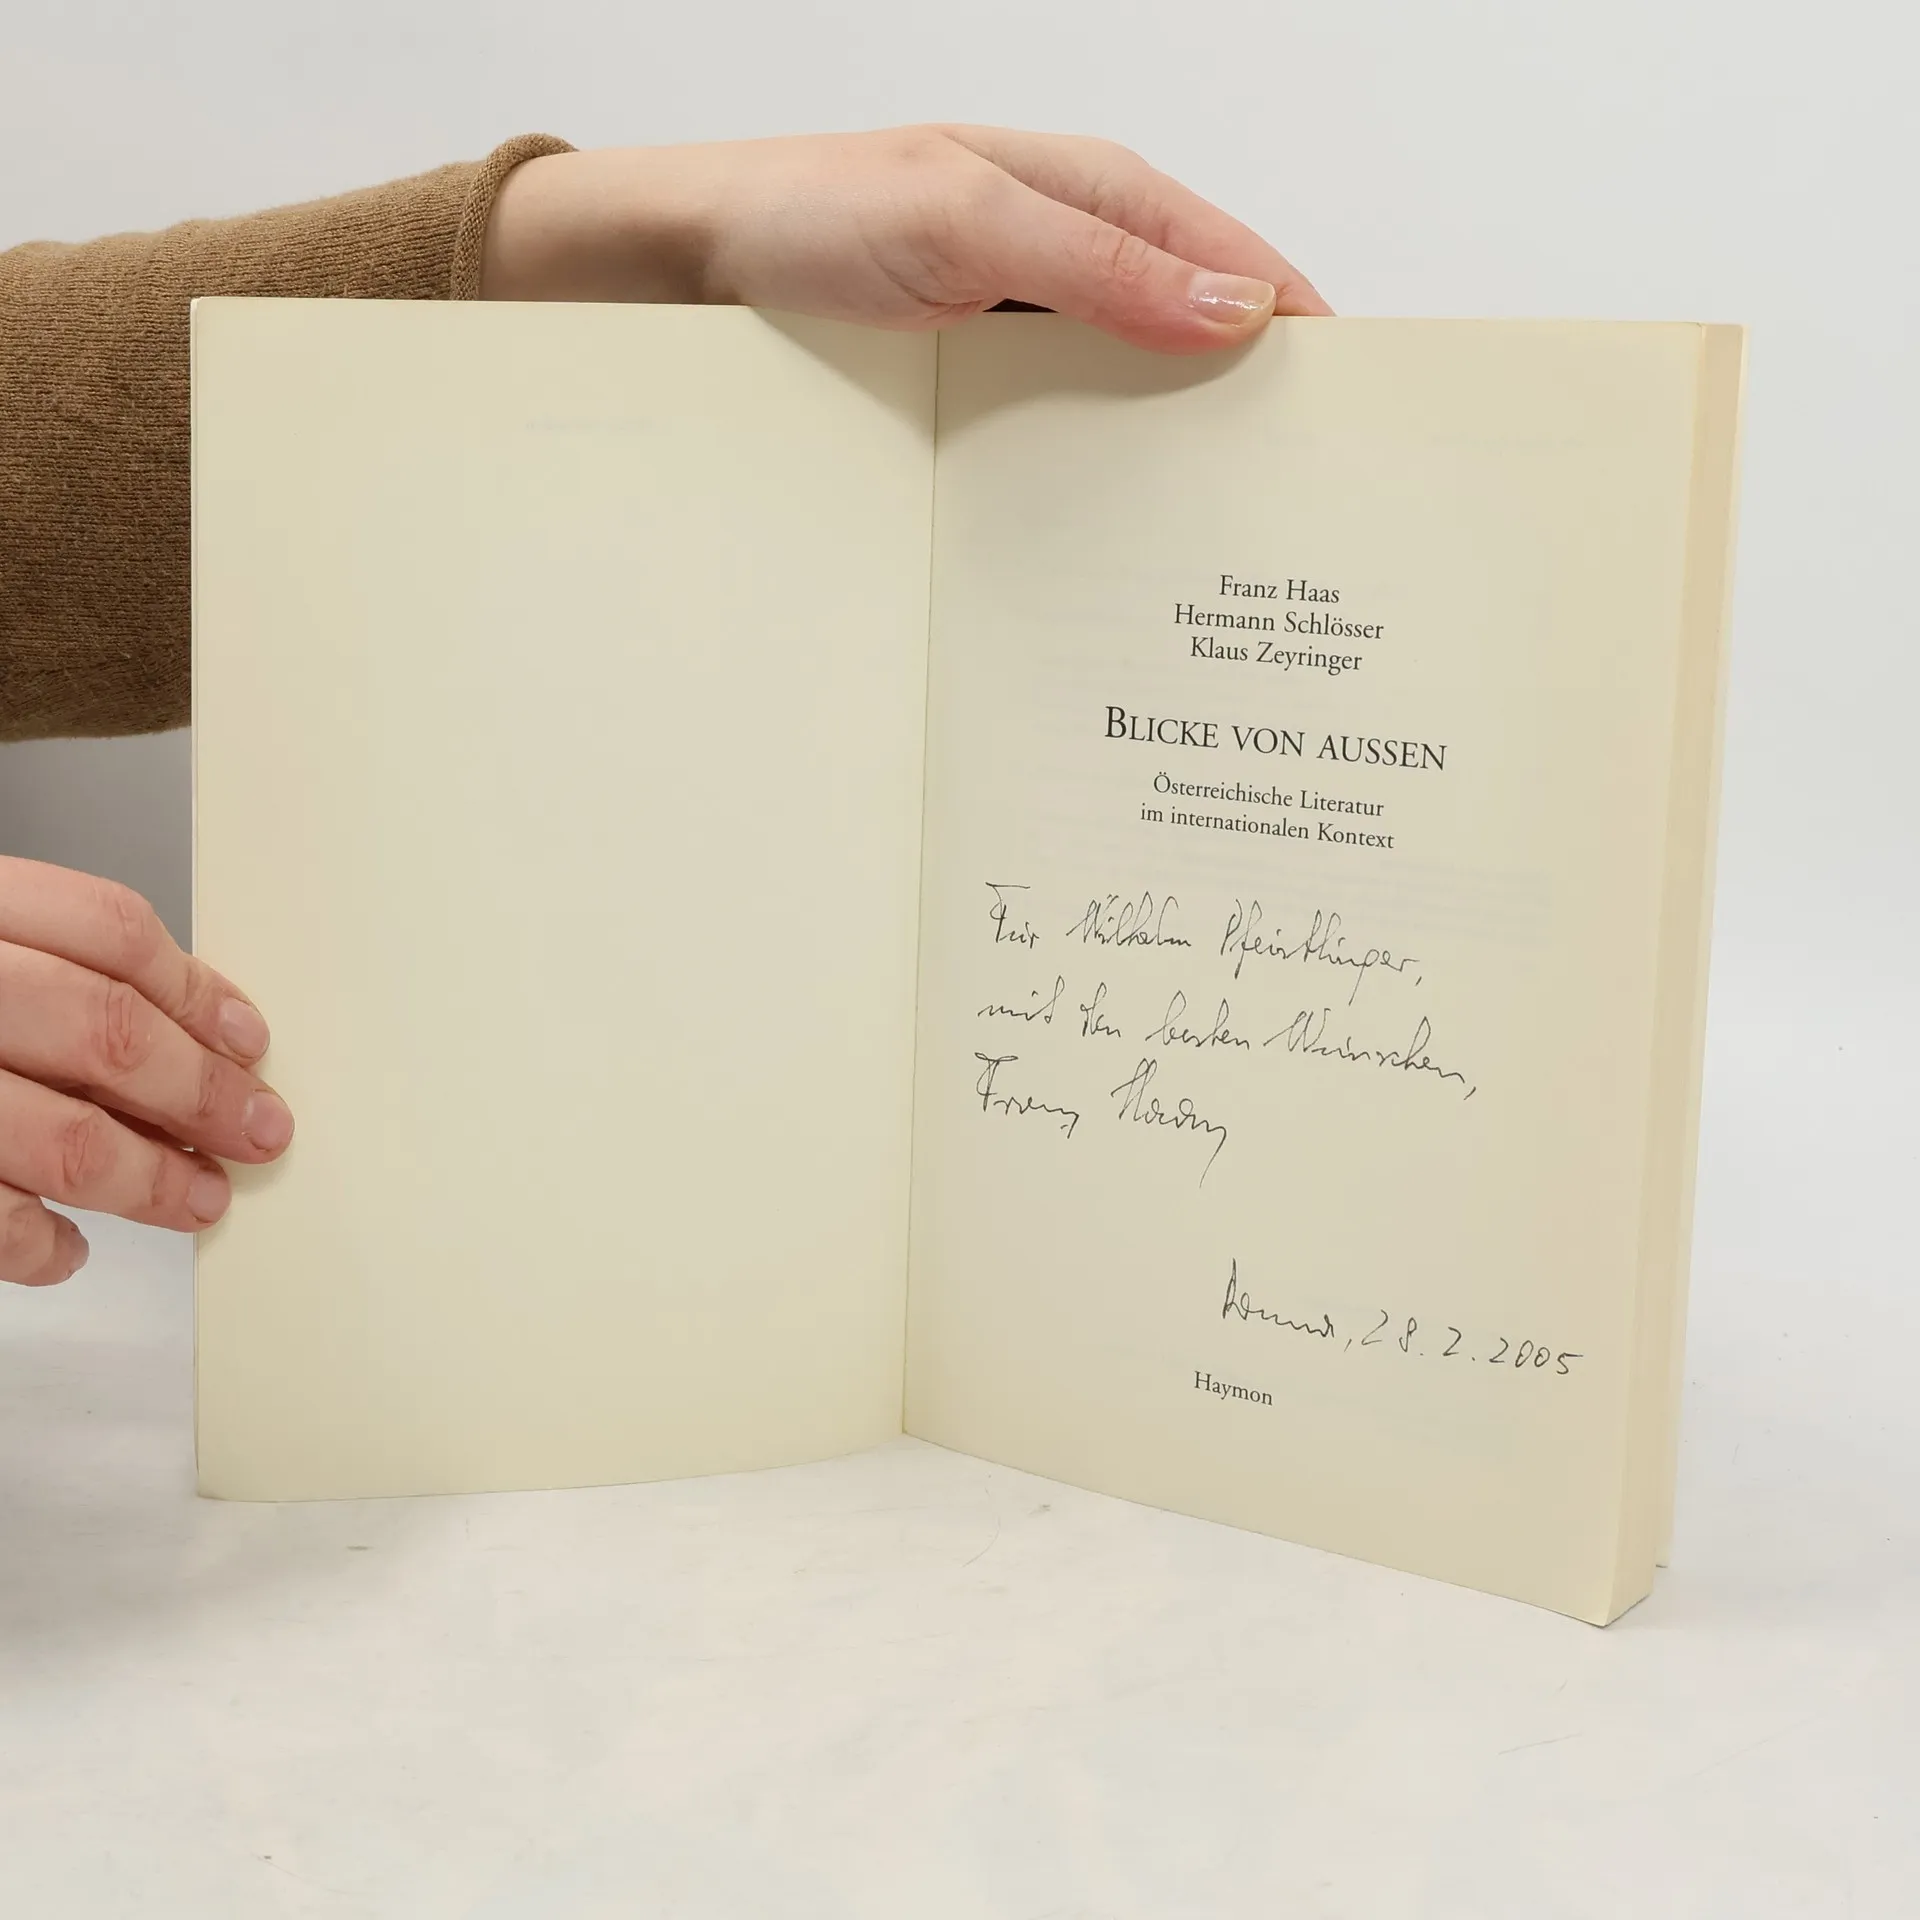 Franz Haas
Hermann Schlösser
Klaus Zeyringer
BLICKE VON AUSSEN
Österreichische Literatur
im internationalen Kontext
Für Wilhelm Pfeistlinger,
mit den besten Wünschen,
Franz Haas
28.2.2005
Haymon